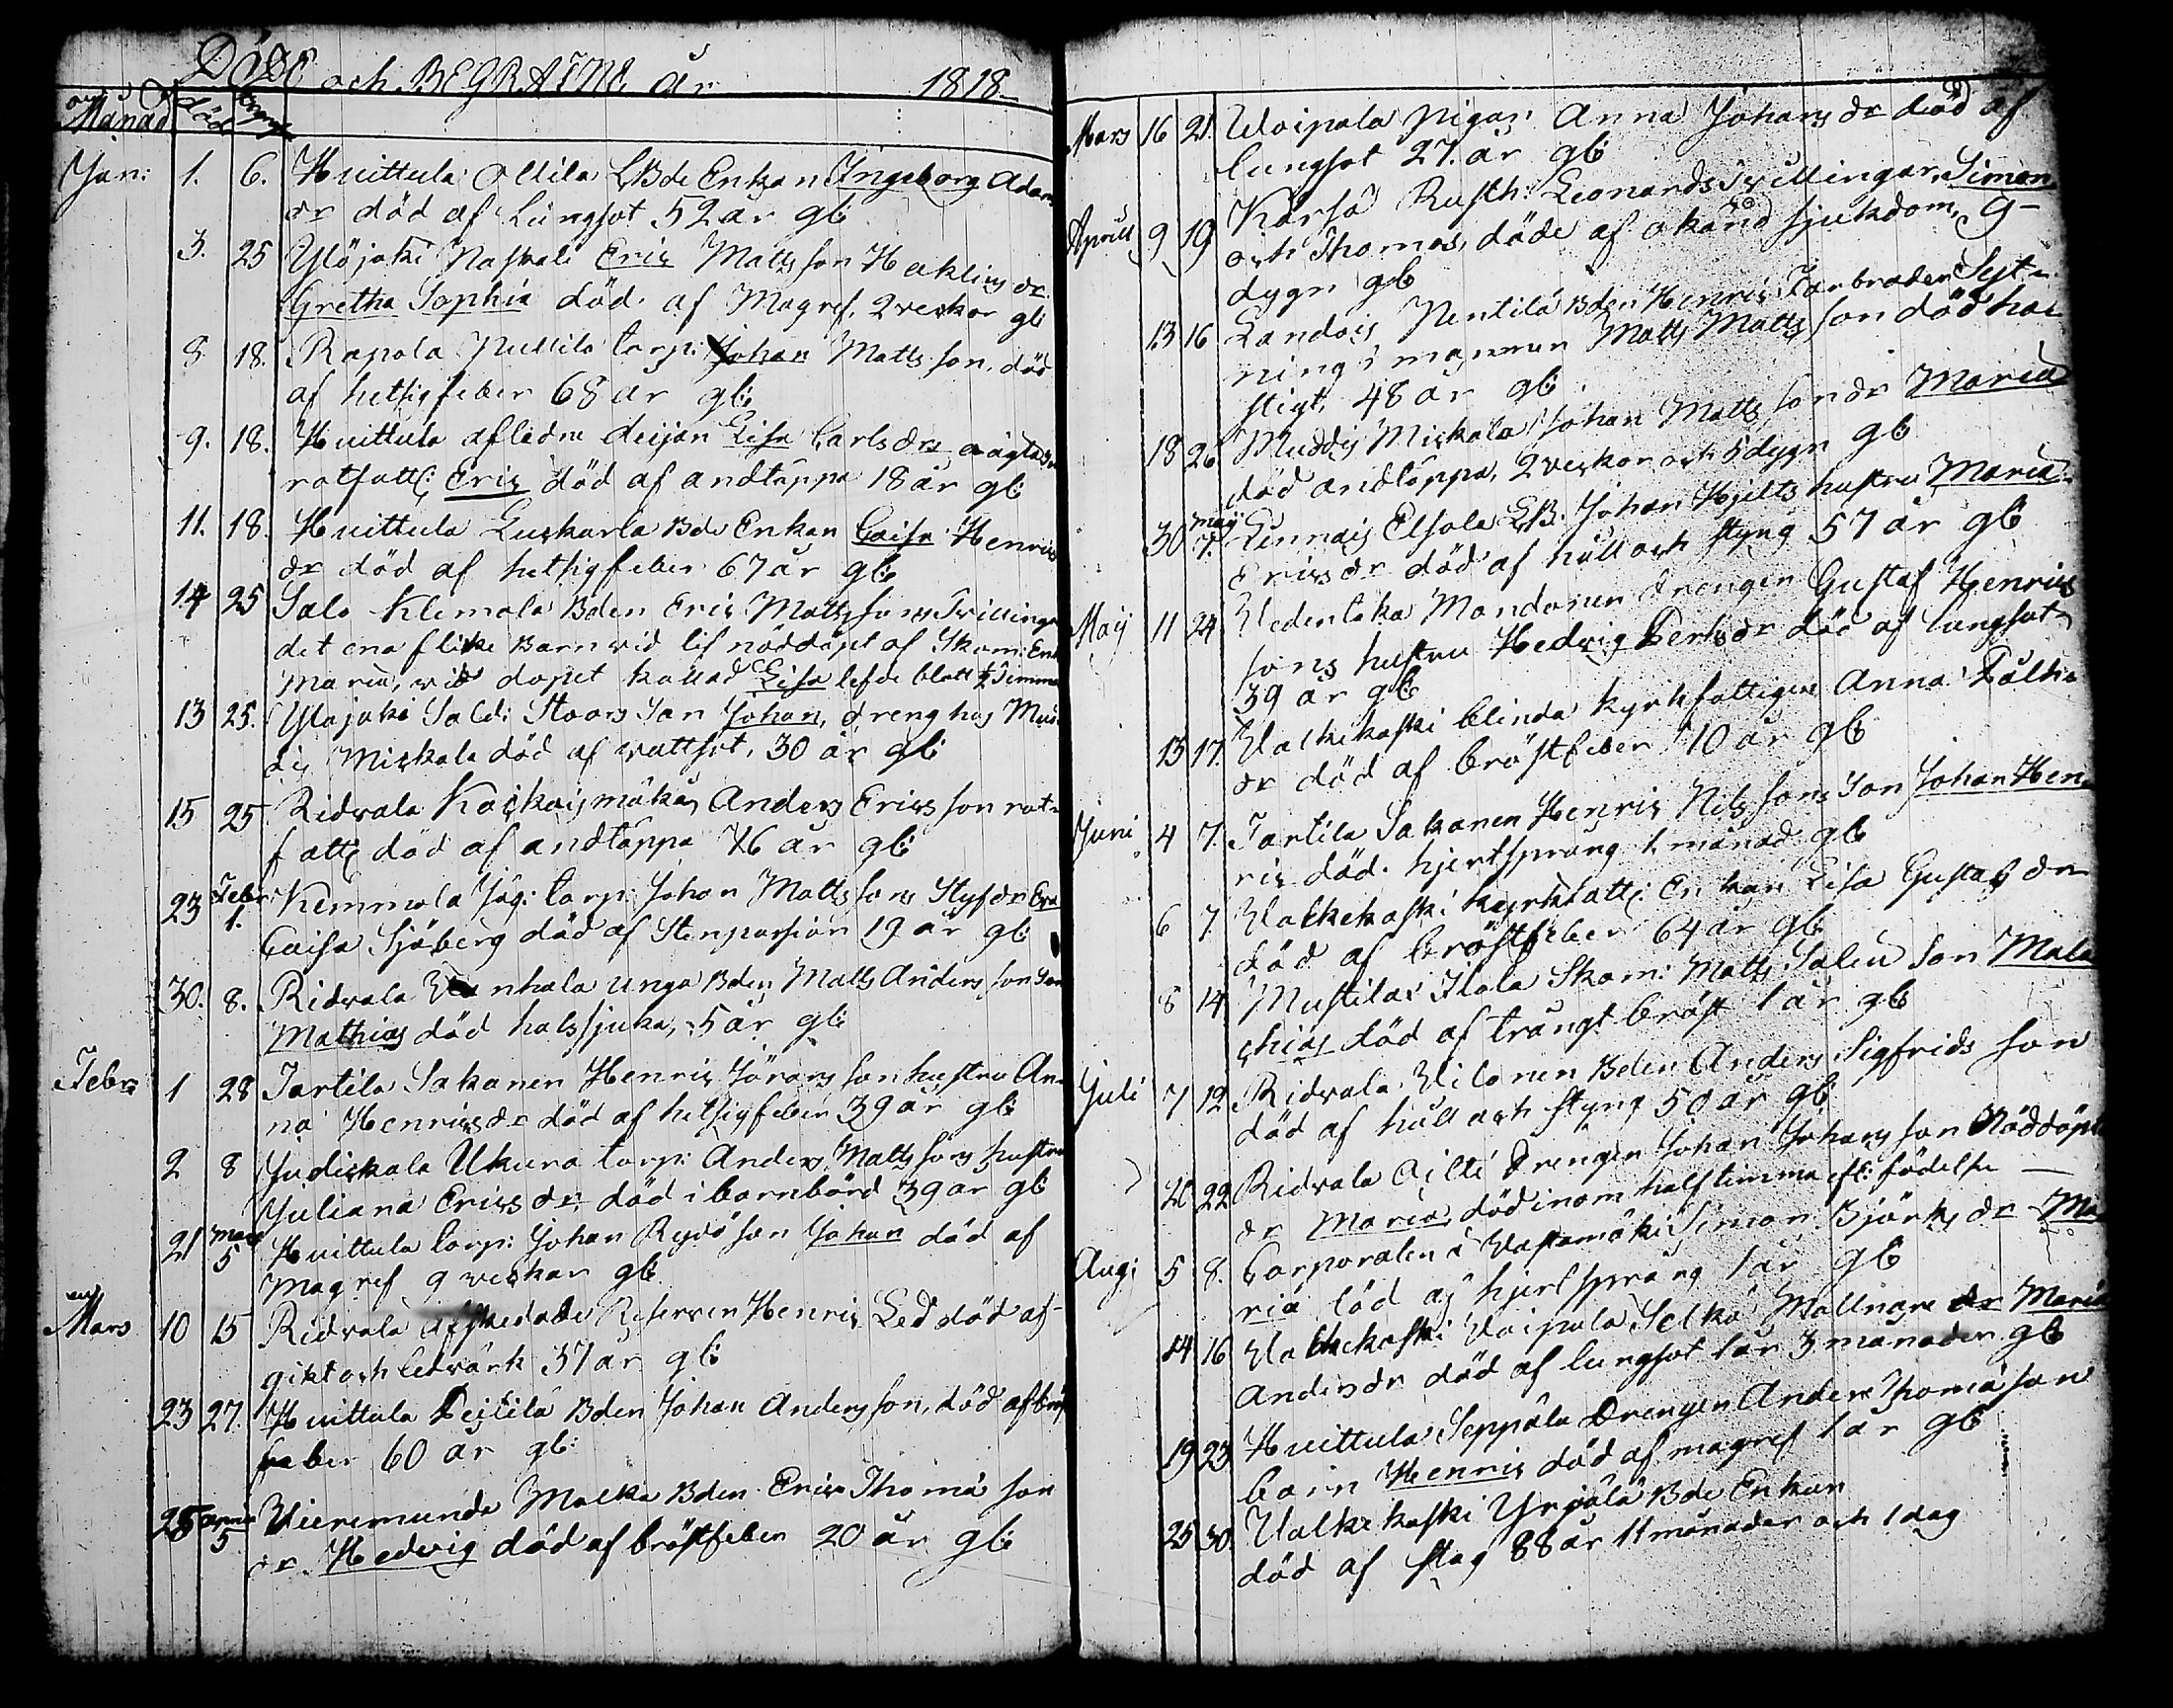 DÖDE och BEGRAFNE År 1818.
Månad död begrafn
Jan: 1. 6. Huittula Ollila LBde Enkan Ingeborg Adams
dr död af Lungsot 52 år gl:
3. 25 Ylöjoki Naskali Eric Matts son Haklins dr
Gretha Sophia död af Magref, 2 veckor gl:
8 18. Rapola Pullila torp: Johan Matts son, död
af hetsigfeber 68 år gl:
9. 18. Huittula aflidne deijan Lisa Carls drs oägta son
rotfatt: Eric död af andtäppa 18 år gl:
11. 18. Huittula Luskarla Bde Enkan Caisa Henrics
dr död af hetsigfeber 67 år gl:
14 25 Salo Klemola Bden Eric Matts sons Tvillingar
det ena flicke Barn vid lif nöddöpt af Skom: Enk
Maria, vid dopet kallad Lisa lefde blott ½ Timma
13 25. Ylöjoki Sold: Stoors Son Johan, dreng hos Mud
dis Mickola död af vattsot, 30 år gl:
15 25 Ridvala Kackaismäkä Anders Erics son rot-
fatt: död af andtäppa 76 år gl:
23 Febr: 1. Kemmola Jäg: torp: Johan Matts sons Styfdr Eva
Caisa Sjöberg död af Stenpassion 19 år gl:
30. 8. Ridvala Vanhala unga Bden Matts Anders son Son
Mathias död halssjuka, 5 år gl:
Febr: 1 28 Tartila Sakanen Henric Görans son hustru An-
na Henrics dr död af hetsigfeber 39 år gl:
2 8 Judickala Ukura torp: Anders Matts sons hustru
Juliana Erics dr: död i barnbörd 39 år gl:
21 Mars 5 Huittula torp: Johan Rydö son Johan död af
Magref 9 veckor gl:
Mars 10 15 Ridvala afskedade Reserven Henric Led död af
gikt och ledvärk 37 år gl:
23 27. Huittula Peitilä Bden Johan Anders son, död af bröst
feber 60 år gl:
28 April 5 Vieremunda Malka Bden Eric Thomä son
dr Hedvig död af bröstfeber 20 år gl:
Mars 16 21. Uoipala pigan Anna Johans dr död af
lungsot 27. år gl:
Aprill 9 19 Kärsä Rusth: Leonards Tvillingar, Simon
och Thomas, döde af okänd sjukdom, 9-
dygn gl:
13 16 Landois Pentilä Bden Henrics Farbroder Syst-
ning i mannen Matts Matts son död ha-
stigt, 48 år gl:
18 26 Muddis Mickola Johan Matts son dr Maria
död andtäppa, 2 veckor och 5 dygn gl:
30 May 7. Linnais Elsola LB. Johan Hjelts hustru Maria
Erics dr död af håll och styng 57 år gl:
Maij 11 24 Vedentaka Mandanen drengen Gustaf Henrics
sons hustru Hedvig Perts dr död af lungsot
39 år gl:
13 17. Valkekoski blinda kyrkfattigen Anna Påls
dr död af bröstfeber 70 år gl:
Juni 4 7. Tartila Sakanen Henric Nils sons Son Johan Hen-
ric död. hjertsprång 1 månad gl:
6 7 Valkekoski kyrkfatt: Enkan Lisa Gustafs dr
död af bröstfeber 64 år gl:
8 14 Mustila Ilola Skom: Matts Salin son Mala-
chias död af trångt bröst 1 år gl:
Juli 7 12 Ridvala Vilonen Bden Anders Sigfrids son
död af håll och styng 50 år gl:
20 22 Ridvala Cilti Drengen Johan Johans son Nöddöpt
dr Maria, död inom half timma eft: födelse
Aug: 5 8. Corporalen i Vastamäki Simon Björks dr Ma
ria död af hjertsprång 1 år gl:
14 16 Valkekoski Voipala Selkä Möllnare dr Maria
Anders dr död af lungsot 1 år 3 månader gl:
19 23 Huittula Seppälä Drengen Anders Thomä son
barn Henric död af magref 1 år gl:
25 30. Valkekoski Yrjälä Bde Enkan
död af slag 88 år 11 månader och 1 dag